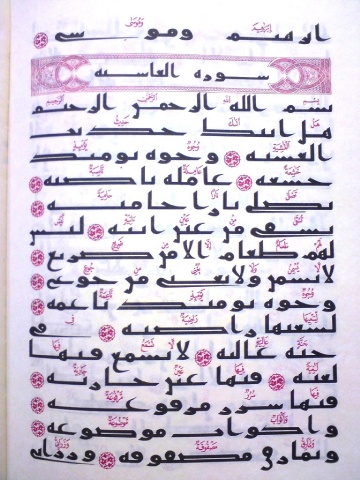 ابرهيم وموسى
سورة الغاشية
بسم الله الرحمن الرحيم
هل اتيك حديث
الغشية وجوه يومئذ
خشعة عاملة ناصبة
تصلى نارا حامية
تسقى من عين انية ليس
لهم طعام الا من ضريع
لا يسمن ولا يغنى من جوع
وجوه يومئذ ناعمة
لسعيها راضية فى
جنة عالية لا تسمع فيها
لغية فيها عين جارية
فيها سرر مرفوعة
واكواب موضوعة
ونمارق مصفوفة وزرابى